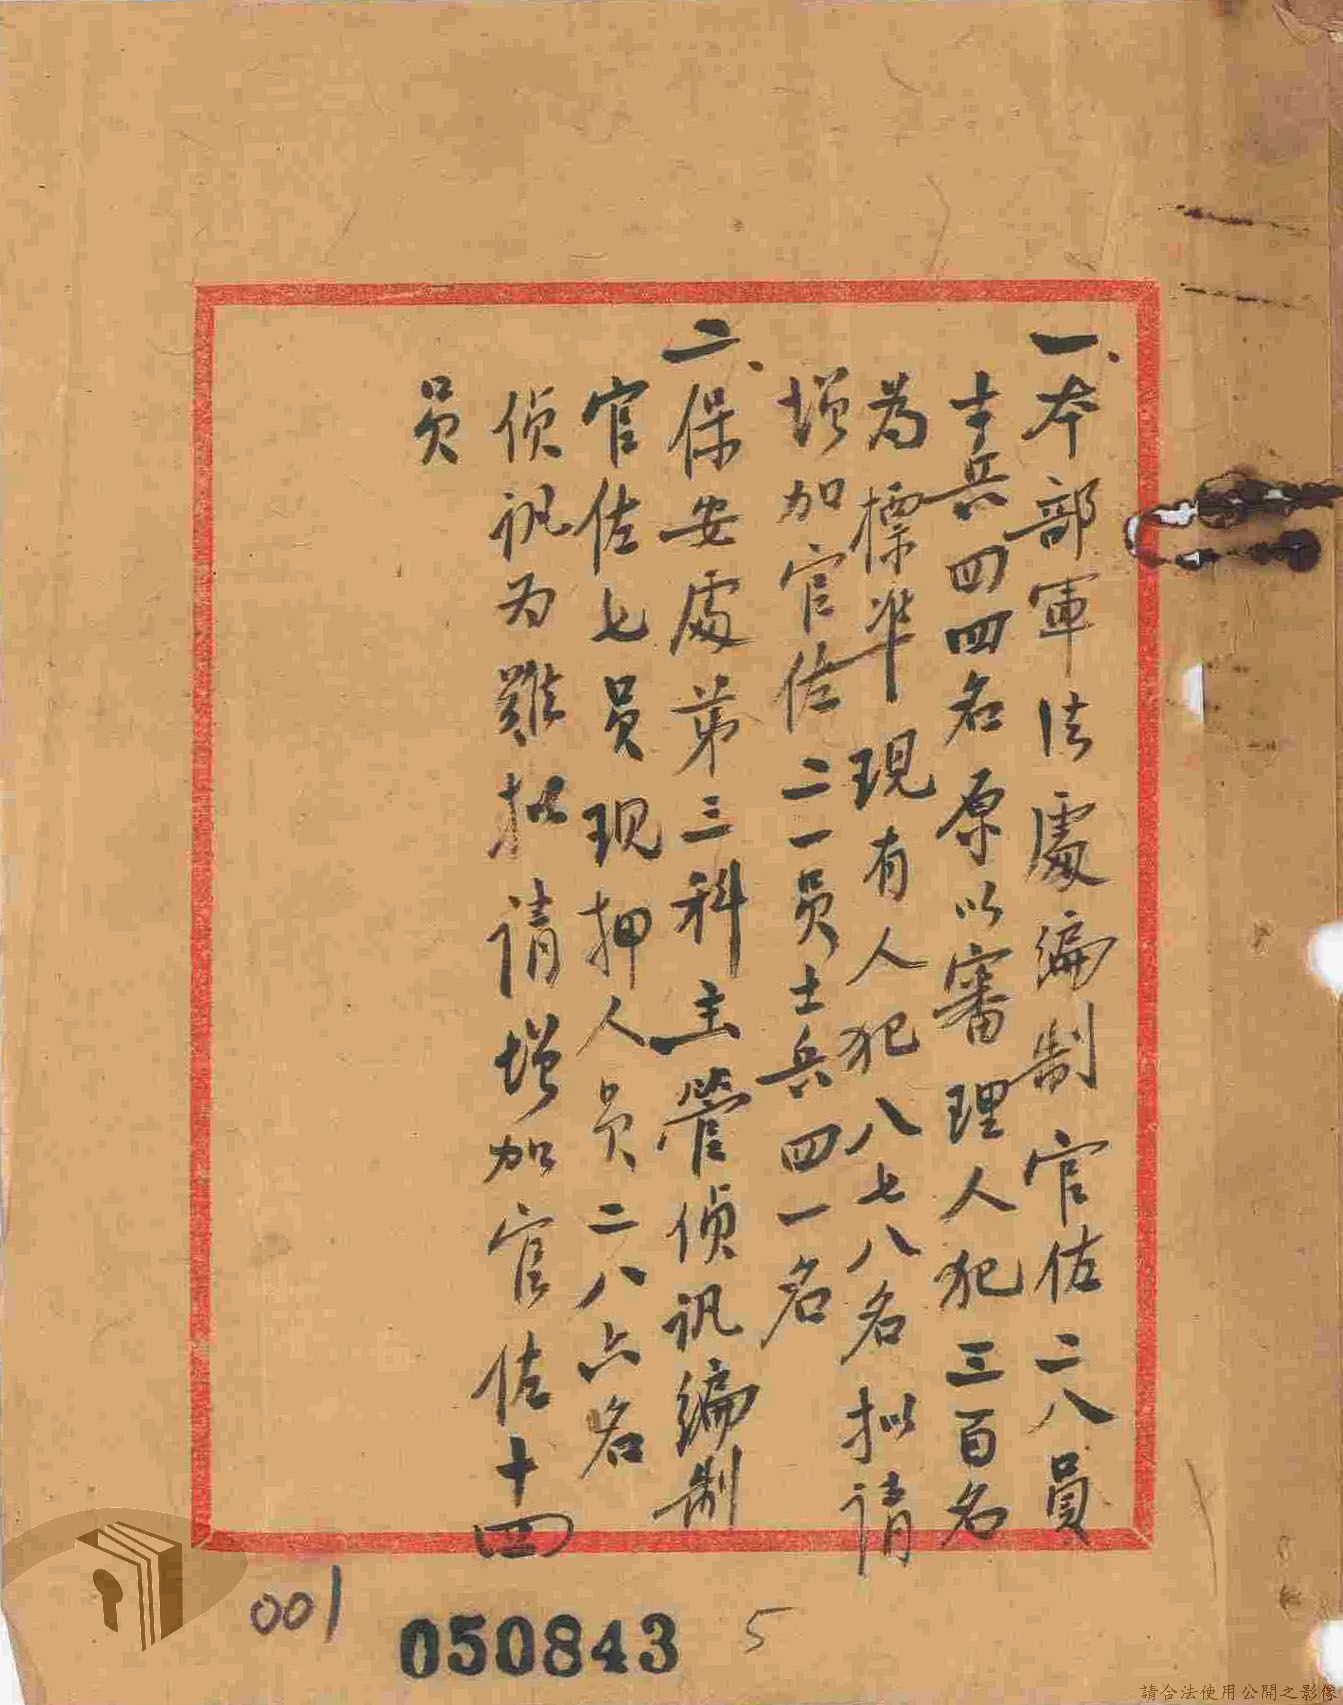 一、本部軍法處編制官佐二八員
士兵四四名原以審理人犯三百名
為標準現有人犯八七八名拟請
增加官佐二一員士兵四一名
二、保安處第三科主管偵訊編制
官佐七員現押人員二八六名
偵訊為難拟請增加官佐十四
員
001
050843
5
請合法使用公開之影像